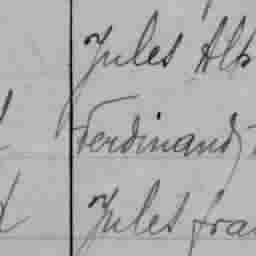 Jules Alb
Ferdinand
Jules fra